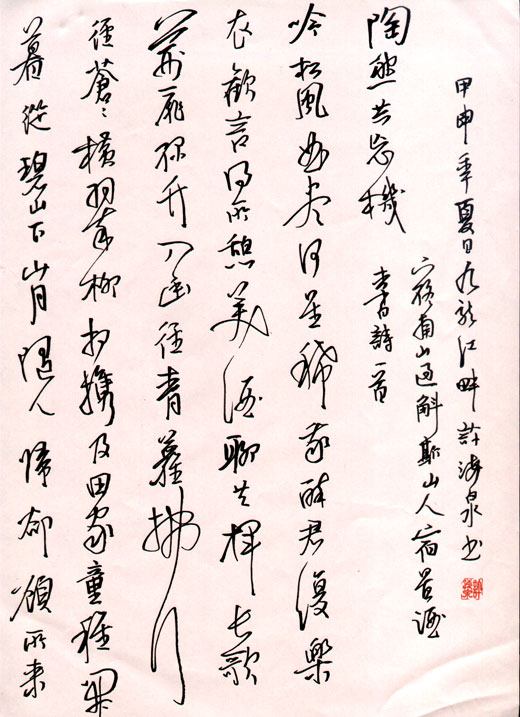 暮從碧山下山月隨人歸却顧所來
徑蒼々橫翠微相攜及田家童稚開
荊扉綠竹入幽徑青蘿拂行
衣歡言得所憩美酒聊共揮長歌
吟松風曲盡河星稀我醉君復樂
陶然共忘機
李白詩一首
下終南山過斛斯山人宿置酒
甲申年夏日九龙江畔許海泉书